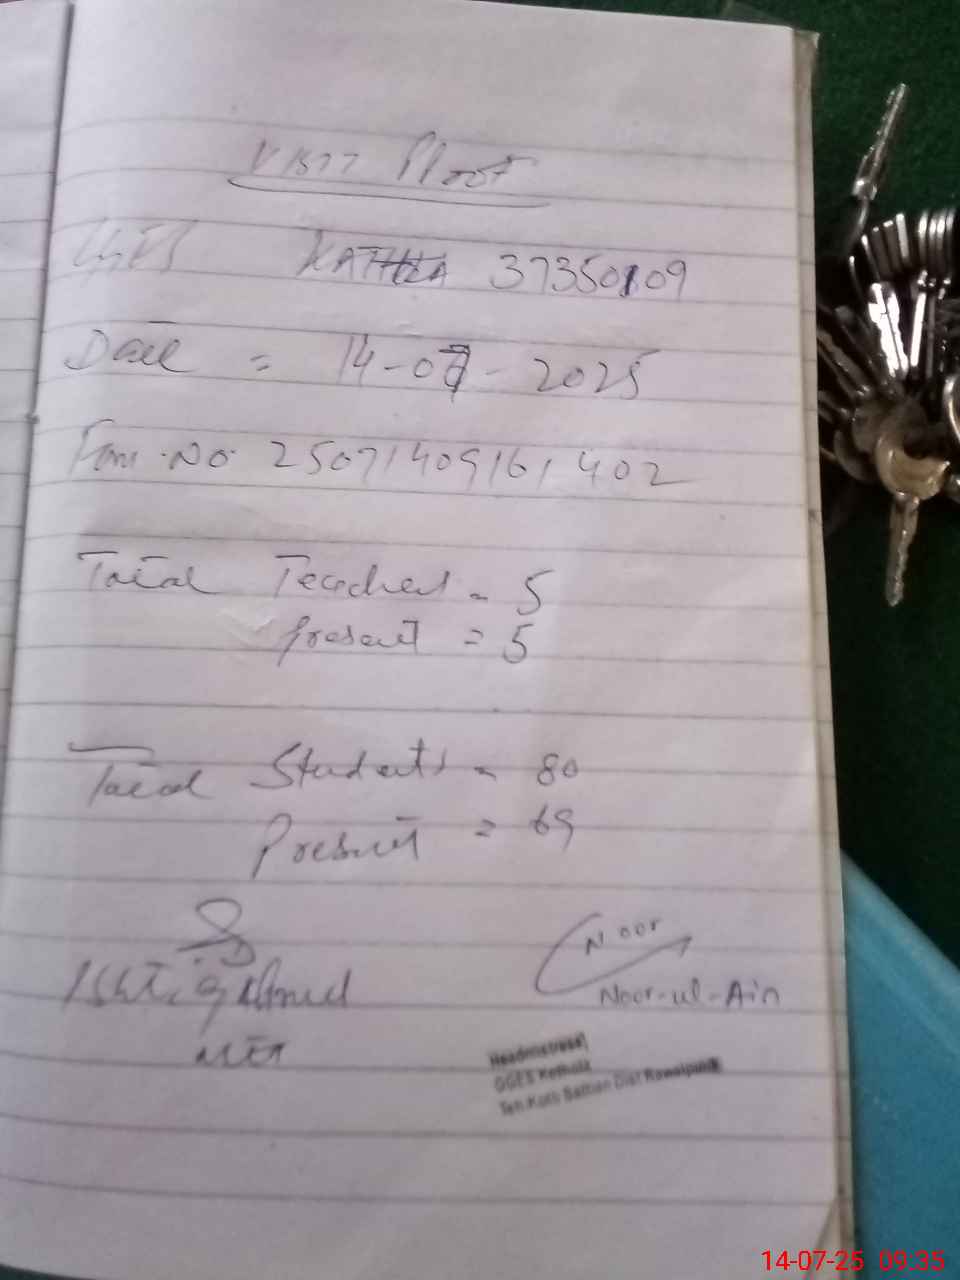 VISIT Proof
GGES KATHLA 37350109
Date = 14-07-2025
Form No 25071409161402
Total Teacher = 5
present = 5
Total Students = 80
Present = 69
Noor
Ishtiaq Ahmed Noor-ul-Ain
MEA
Headmistress
GGES
Teh Kotli Sattian Dist Rawalpindi
14-07-25 09:35